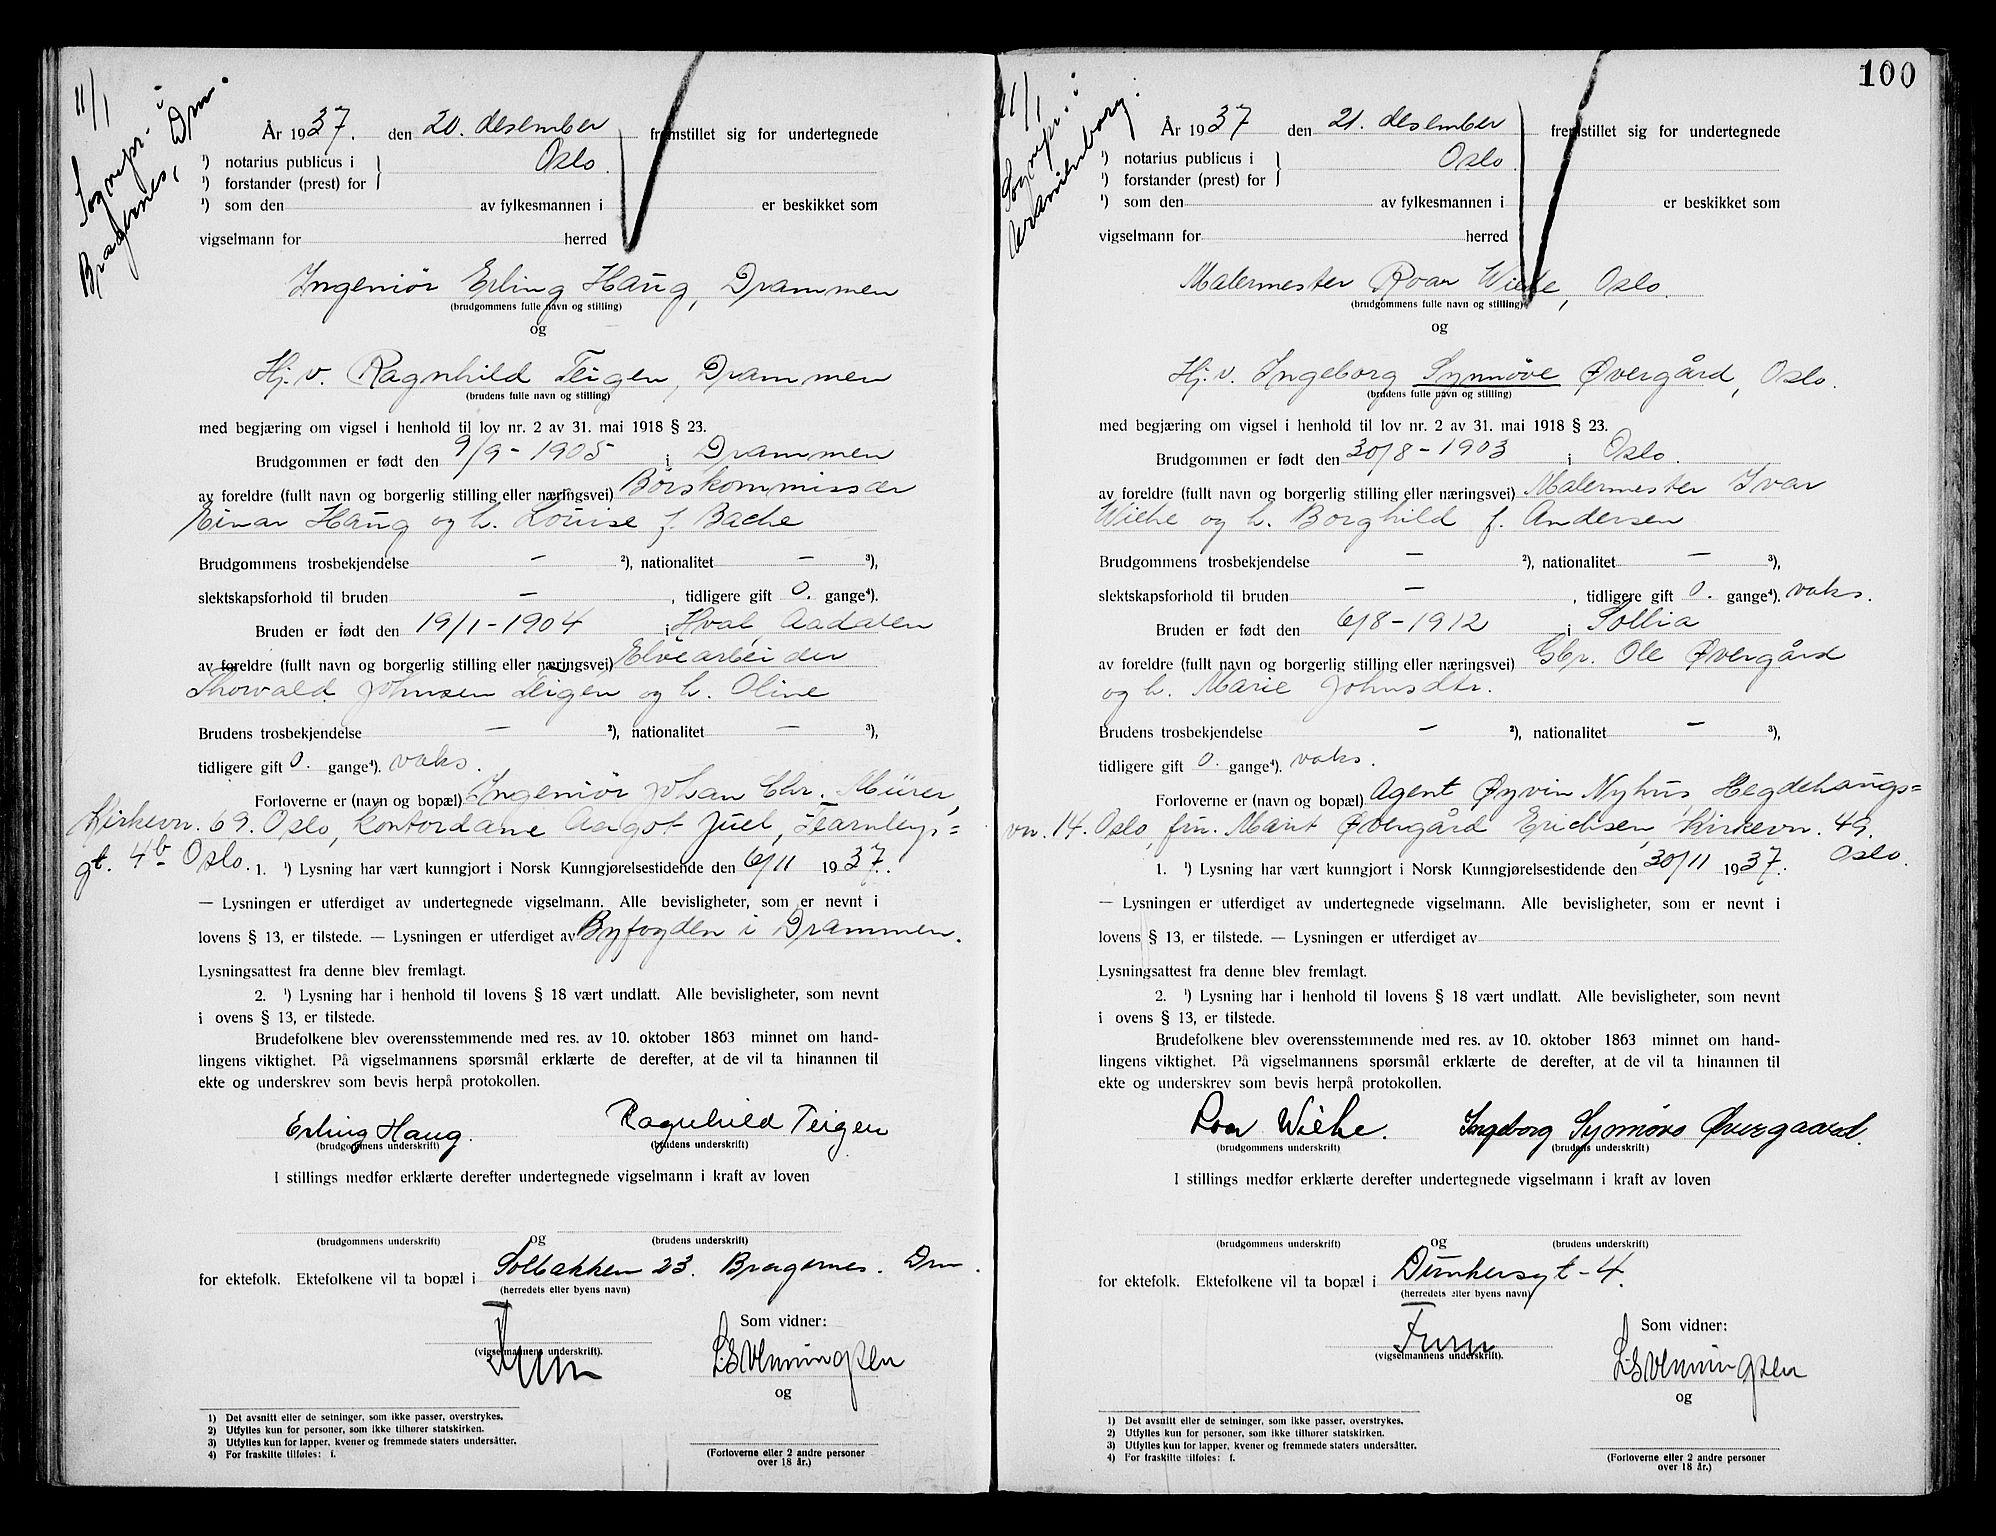 11/1
Sognepr. i
Bragernes, Drm.
År 1937. den 20. desember fremstillet sig for undertegnede
¹) notarius publicus i
¹) forstander (prest) for } Oslo.
¹) som den av fylkesmannen i er beskikket som
vigselmann for herred
Ingeniør Erling Haug, Drammen
(brudgommens fulle navn og stilling)
og
Hj. v. Ragnhild Teigen, Drammen
(brudens fulle navn og stilling)
med begjæring om vigsel i henhold til lov nr. 2 av 31. mai 1918 § 23.
Brudgommen er født den 9/9 - 1905 i Drammen
av foreldre (fullt navn og borgerlig stilling eller næringsvei) Børskommissær
Einar Haug og h. Louise f. Bache
Brudgommens trosbekjendelse - ²), nationalitet - ³),
slektskapsforhold til bruden - , tidligere gift 0. gange⁴).
Bruden er født den 19/1 - 1904 i Hval, Aadalen
av foreldre (fullt navn og borgerlig stilling eller næringsvei) Elvearbeider
Thorvald Johnsen Teigen og h. Oline
Brudens trosbekjendelse - ²), nationalitet - ³),
tidligere gift 0. gange⁴). vaks.
Forloverne er (navn og bopæl) Ingeniør Johan Chr. Mürer,
Kirkevn. 69. Oslo, kontordame Aagot Juel, Fearnleys=
gt. 4b Oslo.
1. ¹) Lysning har vært kunngjort i Norsk Kunngjørelsestidende den 6/11 1937.
— Lysningen er utferdiget av undertegnede vigselmann. Alle bevisligheter, som er nevnt i
lovens § 13, er tilstede. — Lysningen er utferdiget av Byfogden i Drammen.
Lysningsattest fra denne blev fremlagt.
2. ¹) Lysning har i henhold til lovens § 18 vært undlatt. Alle bevisligheter, som nevnt
i ovens § 13, er tilstede.
Brudefolkene blev overensstemmende med res. av 10. oktober 1863 minnet om hand-
lingens viktighet. På vigselmannens spørsmål erklærte de derefter, at de vil ta hinannen til
ekte og underskrev som bevis herpå protokollen.
Erling Haug. Ragnhild Teigen
(brudgommens underskrift) (brudens underskrift)
I stillings medfør erklærte derefter undertegnede vigselmann i kraft av loven
og
(brudgommens underskrift) (brudens underskrift)
for ektefolk. Ektefolkene vil ta bopæl i Solbakken 23. Bragernes. Drm.
(herredets eller byens navn)
Som vidner:
Furu
(vigselmannens underskrift).
L. S. Venningsen
og
1) Det avsnitt eller de setninger, som ikke passer, overstrykes.
2) Utfylles kun for personer, som ikke tilhører statskirken.
3) Utfylles kun for lapper, kvener og fremmede staters undersåtter.
4) For fraskilte tilføies: f.
(Forloverne eller 2 andre personer
over 18 år.)
100
11/1
Sognepr. i
Uranienborg.
År 1937 den 21. desember fremstillet sig for undertegnede
¹) notarius publicus i
¹) forstander (prest) for } Oslo.
¹) som den av fylkesmannen i er beskikket som
vigselmann for herred
Malermester Roar Wiehe, Oslo.
(brudgommens fulle navn og stilling)
og
Hj. v. Ingeborg Synnøve Øvergård, Oslo.
(brudens fulle navn og stilling)
med begjæring om vigsel i henhold til lov nr. 2 av 31. mai 1918 § 23.
Brudgommen er født den 30/8 - 1903 i Oslo.
av foreldre (fullt navn og borgerlig stilling eller næringsvei) Malermester Ivar
Wiehe og h. Borghild f. Andersen
Brudgommens trosbekjendelse - ²), nationalitet - ³),
slektskapsforhold til bruden - , tidligere gift 0. gange⁴). vaks.
Bruden er født den 6/8 - 1912 i Sollia
av foreldre (fullt navn og borgerlig stilling eller næringsvei) Gbr. Ole Øvergård
og h. Marie Johnsdtr.
Brudens trosbekjendelse - ²), nationalitet - ³),
tidligere gift 0. gange⁴). vaks.
Forloverne er (navn og bopæl) Agent Øyvin Nyhus, Hegdehaugs=
vn. 14. Oslo, fru. Marit Øvergård Erichsen, Kirkevn. 49.
Oslo.
1. ¹) Lysning har vært kunngjort i Norsk Kunngjørelsestidende den 30/11 1937.
— Lysningen er utferdiget av undertegnede vigselmann. Alle bevisligheter, som er nevnt i
lovens § 13, er tilstede. — Lysningen er utferdiget av
Lysningsattest fra denne blev fremlagt.
2. ¹) Lysning har i henhold til lovens § 18 vært undlatt. Alle bevisligheter, som nevnt
i ovens § 13, er tilstede.
Brudefolkene blev overensstemmende med res. av 10. oktober 1863 minnet om hand-
lingens viktighet. På vigselmannens spørsmål erklærte de derefter, at de vil ta hinannen til
ekte og underskrev som bevis herpå protokollen.
Roar Wiehe. Ingeborg Synnøve Øvergaard.
(brudgommens underskrift) (brudens underskrift)
I stillings medfør erklærte derefter undertegnede vigselmann i kraft av loven
og
(brudgommens underskrift) (brudens underskrift)
for ektefolk. Ektefolkene vil ta bopæl i Dunkersgt - 4.
(herredets eller byens navn)
Som vidner:
Furu
(vigselmannens underskrift).
L. S. Venningsen
og
1) Det avsnitt eller de setninger, som ikke passer, overstrykes.
2) Utfylles kun for personer, som ikke tilhører statskirken.
3) Utfylles kun for lapper, kvener og fremmede staters undersåtter.
4) For fraskilte tilføies: f.
(Forloverne eller 2 andre personer
over 18 år.)